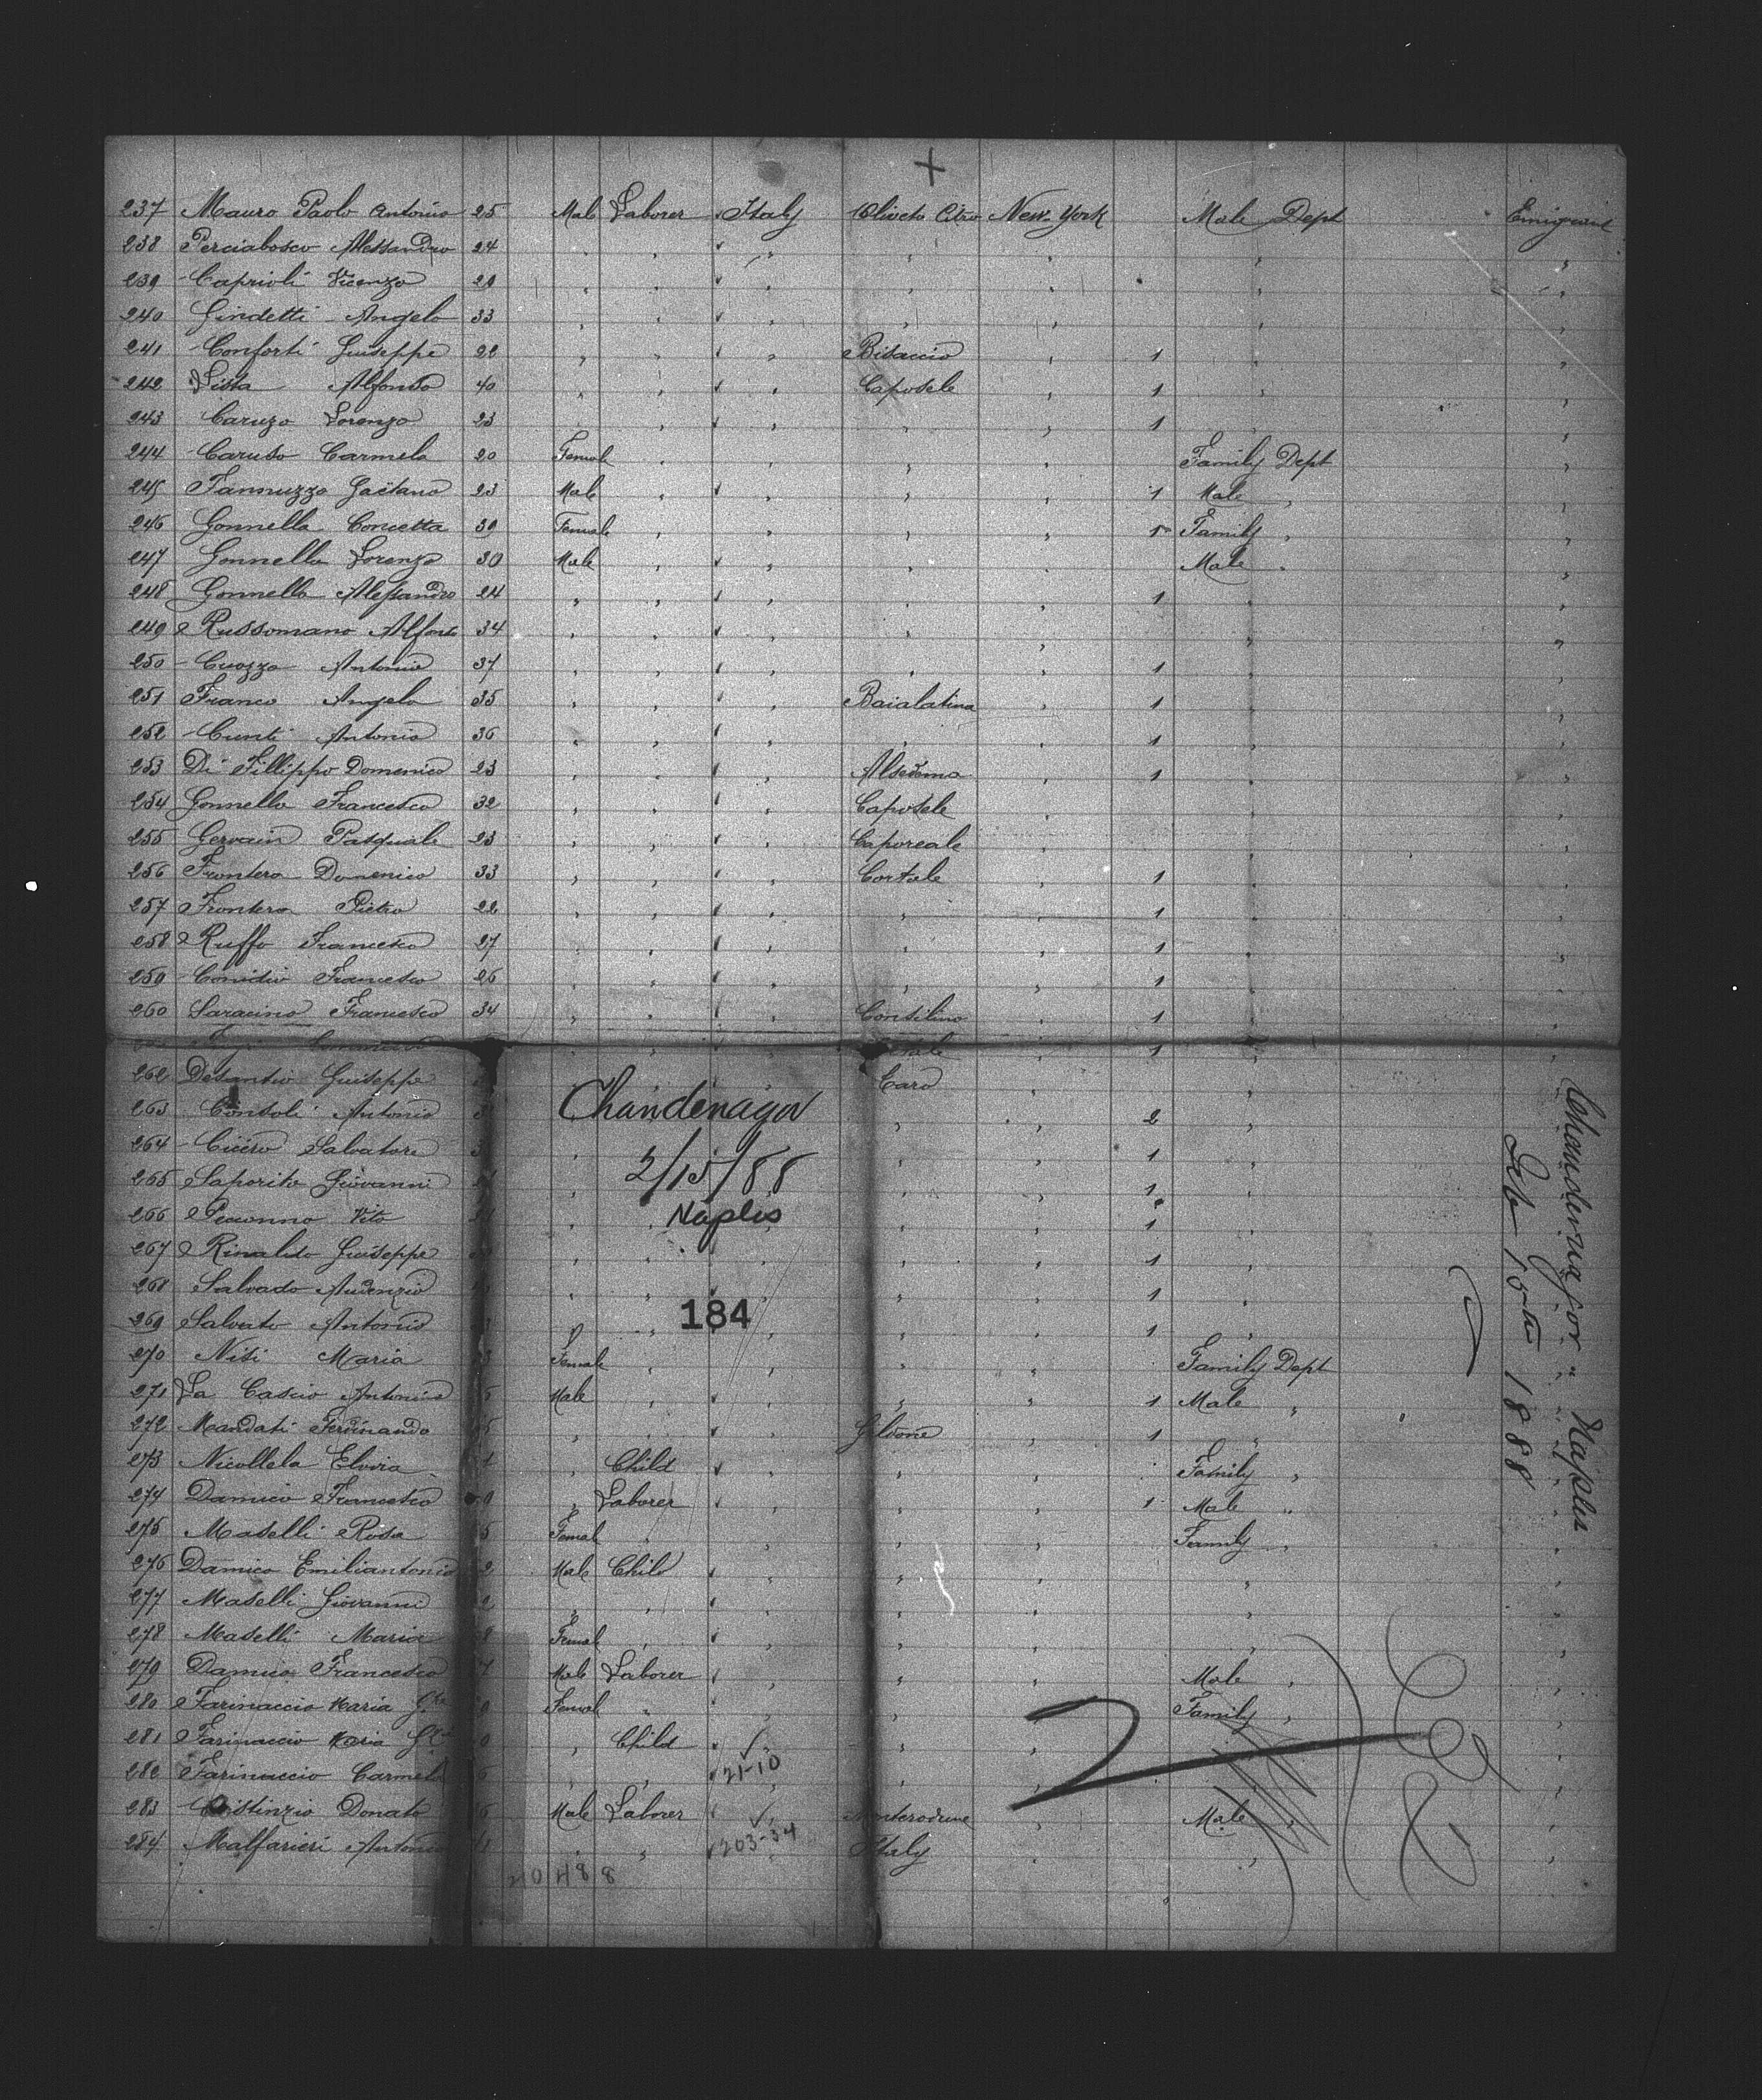 +
237 Mauro Paolo Antonio 25 Male Laborer Italy Oliveto Citro New-York Male Dept Emigrant
238 Perciabosco Alessandro 24 " " " " " " "
239 Caprioli Vicenzo 29 " " " " " " "
240 Gindetti Angelo 33 " " " " " " "
241 Conforti Giuseppe 22 " " " Bisaccio " 1 " "
242 Lista Alfonso 40 " " " Caposele " 1 " "
243 Caruzo Lorenzo 23 " " " " " 1 " "
244 Caruso Carmela 20 Female " " " " Family Dept "
245 Fannuzzo Gaëtano 23 Male " " " " 1 Male " "
246 Gonnella Concetta 39 Female " " " " 1 Family " "
247 Gonnella Lorenzo 30 Male " " " " Male " "
248 Gonnella Alessandro 24 " " " " " 1 " "
249 Russomano Alfonso 34 " " " " " " "
250 Cuozzo Antonio 37 " " " " " 1 " "
251 Franco Angelo 35 " " " Baialatina " 1 " "
252 Cunti Antonio 36 " " " " " 1 " "
253 Di Fillippo Domenico 23 " " " " 1 " "
254 Gonnella Francesco 32 " " " Caposele " " "
255 Gervain Pasquale 23 " " " Caporeale " " "
256 Frontera Domenico 33 " " " Cortale " 1 " "
257 Frontera Pietro 22 " " " " " 1 " "
258 Ruffo Francesco 27 " " " " " 1 " "
259 Francesco 26 " " " " " 1 " "
260 Saracino Francesco 34 " " " Consilino " 1 " "
" " " 1 " "
262 Desantio Giuseppe Caro " " "
263 Consoli Antonio " " 2 "
264 Cicero Salvatore " " " 1 "
265 Saporito Giovanni " " " 1 "
266 Vito " " " 1 "
267 Rinaldo Giuseppe " " " 1 "
268 Salvado Audenzio " " " 1 "
269 Salvato Antonio " " " 1 "
270 Nisi Maria Female " " " " Family Dept
271 La Cascio Antonino Male " " " " 1 Male "
272 Mandati Ferdinando " " " Gildone " 1 "
273 Nicollela Elvira " Child " " " Family "
274 Damico Francesco " Laborer " " " 1 Male "
275 Maselli Rosa Female " " " " Family "
276 Damico Emiliantonio 2 Male Child " " " " "
277 Maselli Giovanni 2 " " " " " " "
278 Maselli Maria Female " " " " " "
279 Damico Francesco Male Laborer " " " Male " "
280 Farinaccio Maria Female " " " " Family " "
281 Farinaccio Maria " Child " " " " "
282 Farinaccio Carmela " " 21-10 " " " "
283 Donato Male Laborer " Monterodune " Male " "
284 Malfarieri Antonio " " 203-34 Italy " " "
Chandenagor
2/15/88
Naples
184
Chandernagor " Naples
Feb 15th 1888
2